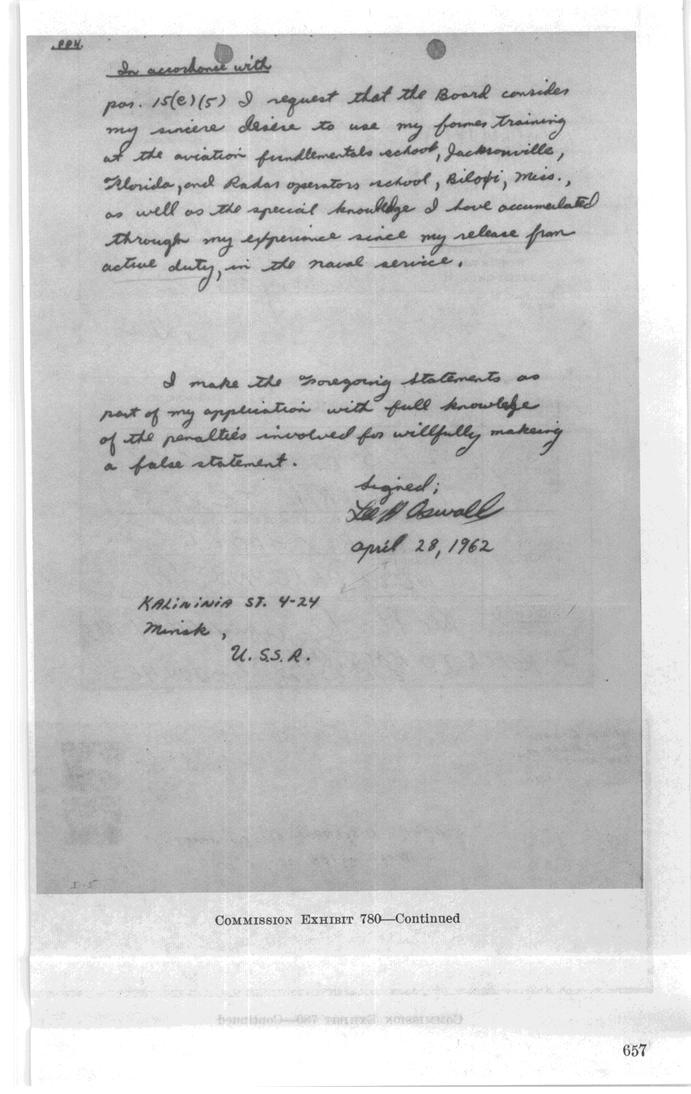 In accordance with
par. 15(e)(5) I request that the Board consider
my sincere desire to use my former training
at the aviation fundlementals school, Jacksonville,
Florida, and Radar operators school, Biloxi, Miss.,
as well as the special knowlege I have accumulated
through my experience since my release from
active duty, in the naval service.
I make the Foregoing statements as
part of my application with full knowlege
of the penalties involved for willfully makeing
a false statement.
Signed;
Lee H Oswald
April 28, 1962
KALININIA ST. 4-24
Minsk,
U.S.S.R.
COMMISSION EXHIBIT 780—Continued
657